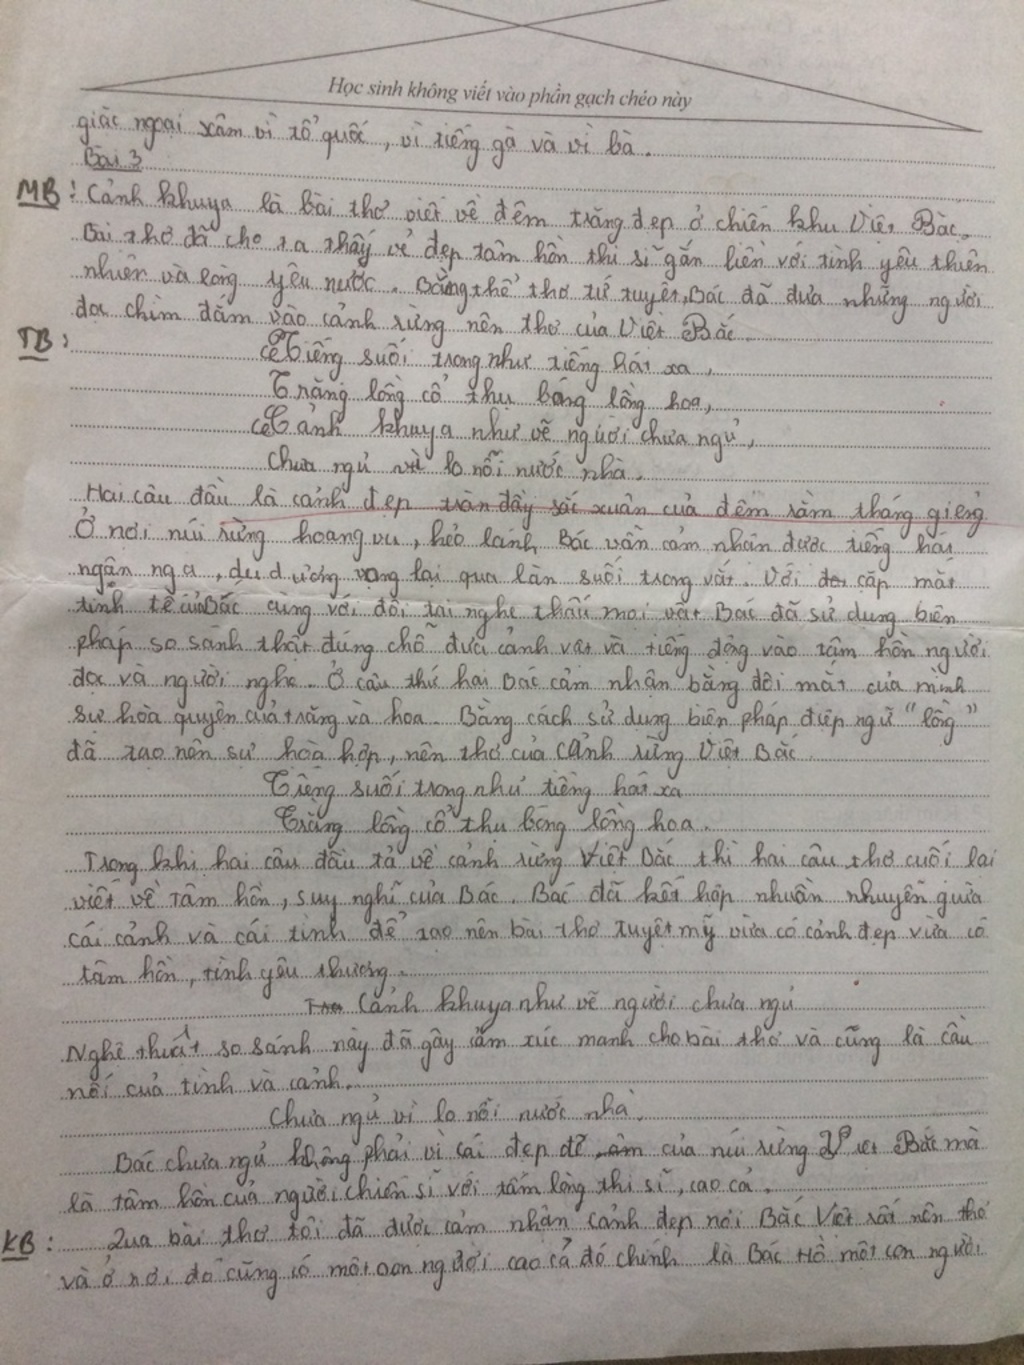 Học sinh không viết vào phần gạch chéo này
giặc ngoại xâm vì tổ quốc, vì tiếng gà và vì bà.
Bài 3
MB: Cảnh khuya là bài thơ viết về đêm trăng đẹp ở chiến khu Việt Bắc.
Bài thơ đã cho ta thấy vẻ đẹp tâm hồn thi sĩ gắn liền với tình yêu thiên
nhiên và lòng yêu nước. Bằng thể thơ tứ tuyệt, Bác đã đưa những người
đọc chìm đắm vào cảnh rừng nên thơ của Việt Bắc.
TB:
Tiếng suối trong như tiếng hát xa,
Trăng lồng cổ thụ bóng lồng hoa,
Cảnh khuya như vẽ người chưa ngủ,
Chưa ngủ vì lo nỗi nước nhà.
Hai câu đầu là cảnh đẹp tràn đầy sắc xuân của đêm rằm tháng giêng
Ở nơi núi rừng hoang vu, hẻo lánh Bác vẫn cảm nhận được tiếng hát
ngân nga, du dương vọng lại qua làn suối trong vắt. Với cặp mắt
tinh tế của Bác cùng với đôi tai nghe thấu mọi vật Bác đã sử dụng biện
pháp so sánh thật đúng chỗ đưa cảnh vật và tiếng động vào tâm hồn người
đọc và người nghe. Ở câu thứ hai Bác cảm nhận bằng đôi mắt của mình
sự hòa quyện của trăng và hoa. Bằng cách sử dụng biện pháp điệp ngữ "lồng"
đã tạo nên sự hòa hợp, nên thơ của cảnh rừng Việt Bắc.
Tiếng suối trong như tiếng hát xa
Trăng lồng cổ thụ bóng lồng hoa.
Trong khi hai câu đầu tả về cảnh rừng Việt Bắc thì hai câu thơ cuối lại
viết về tâm hồn, suy nghĩ của Bác. Bác đã kết hợp nhuần nhuyễn giữa
cái cảnh và cái tình để tạo nên bài thơ tuyệt mỹ vừa có cảnh đẹp vừa có
tâm hồn, tình yêu thương.
Cảnh khuya như vẽ người chưa ngủ
Nghệ thuật so sánh này đã gây cảm xúc mạnh cho bài thơ và cũng là cầu
nối của tình và cảnh.
Chưa ngủ vì lo nỗi nước nhà.
Bác chưa ngủ không phải vì cái đẹp của núi rừng Việt Bắc mà
là tâm hồn của người chiến sĩ với tấm lòng thi sĩ, cao cả.
KB: Qua bài thơ tôi đã được cảm nhận cảnh đẹp nơi Bắc Việt rất nên thơ
và ở nơi đó cũng có một con người cao cả đó chính là Bác Hồ một con người